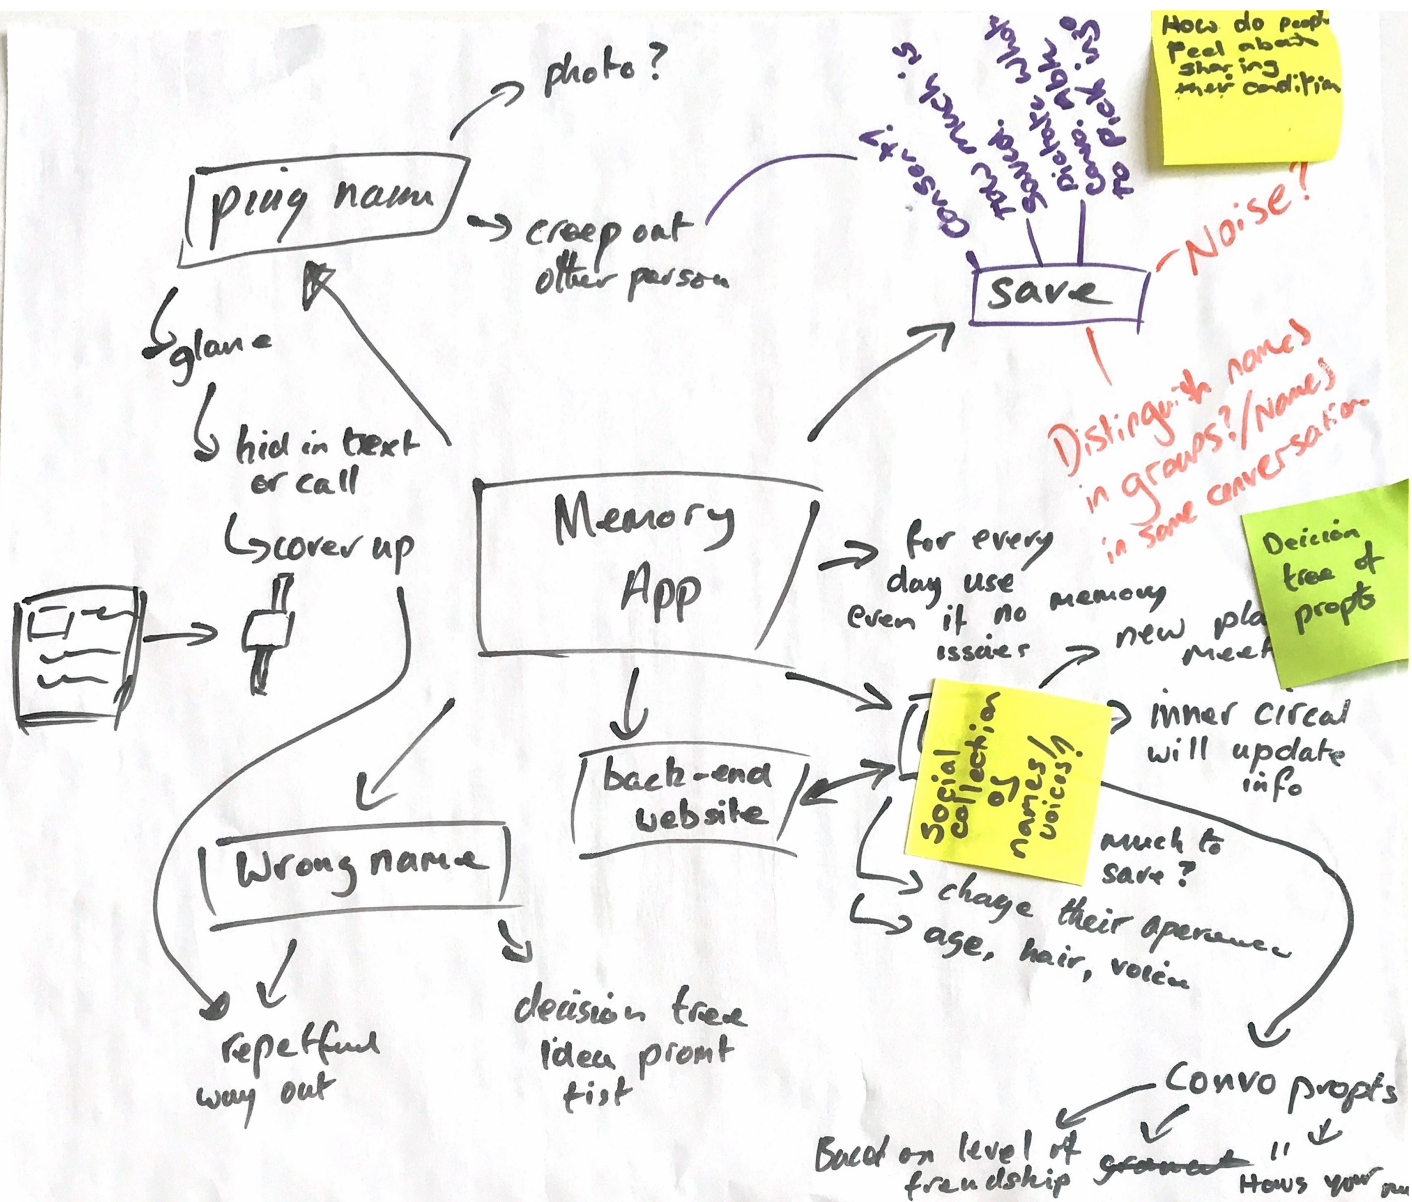 photo?
ping name
creep out
other person
glane
hid in text
or call
cover up
Consent?
How much is
saved.
Dictate what
convo. able
to pick info
save
How do people
feel about
sharing
their condition
Noise?
Distinguish names
in groups?/Names
in same conversation
Memory
App
for every
day use
even if no memory
issues
Deicion
tree of
propts
new pla
meet
inner circal
will update
info
Social
collection
of
names/
voices?
much to
save?
chage their aperance
age, hair, voice
back-end
website
Wrong name
repetful
way out
decision tree
idea promt
fist
Convo propts
Based on level of
freundship
"
Hows your